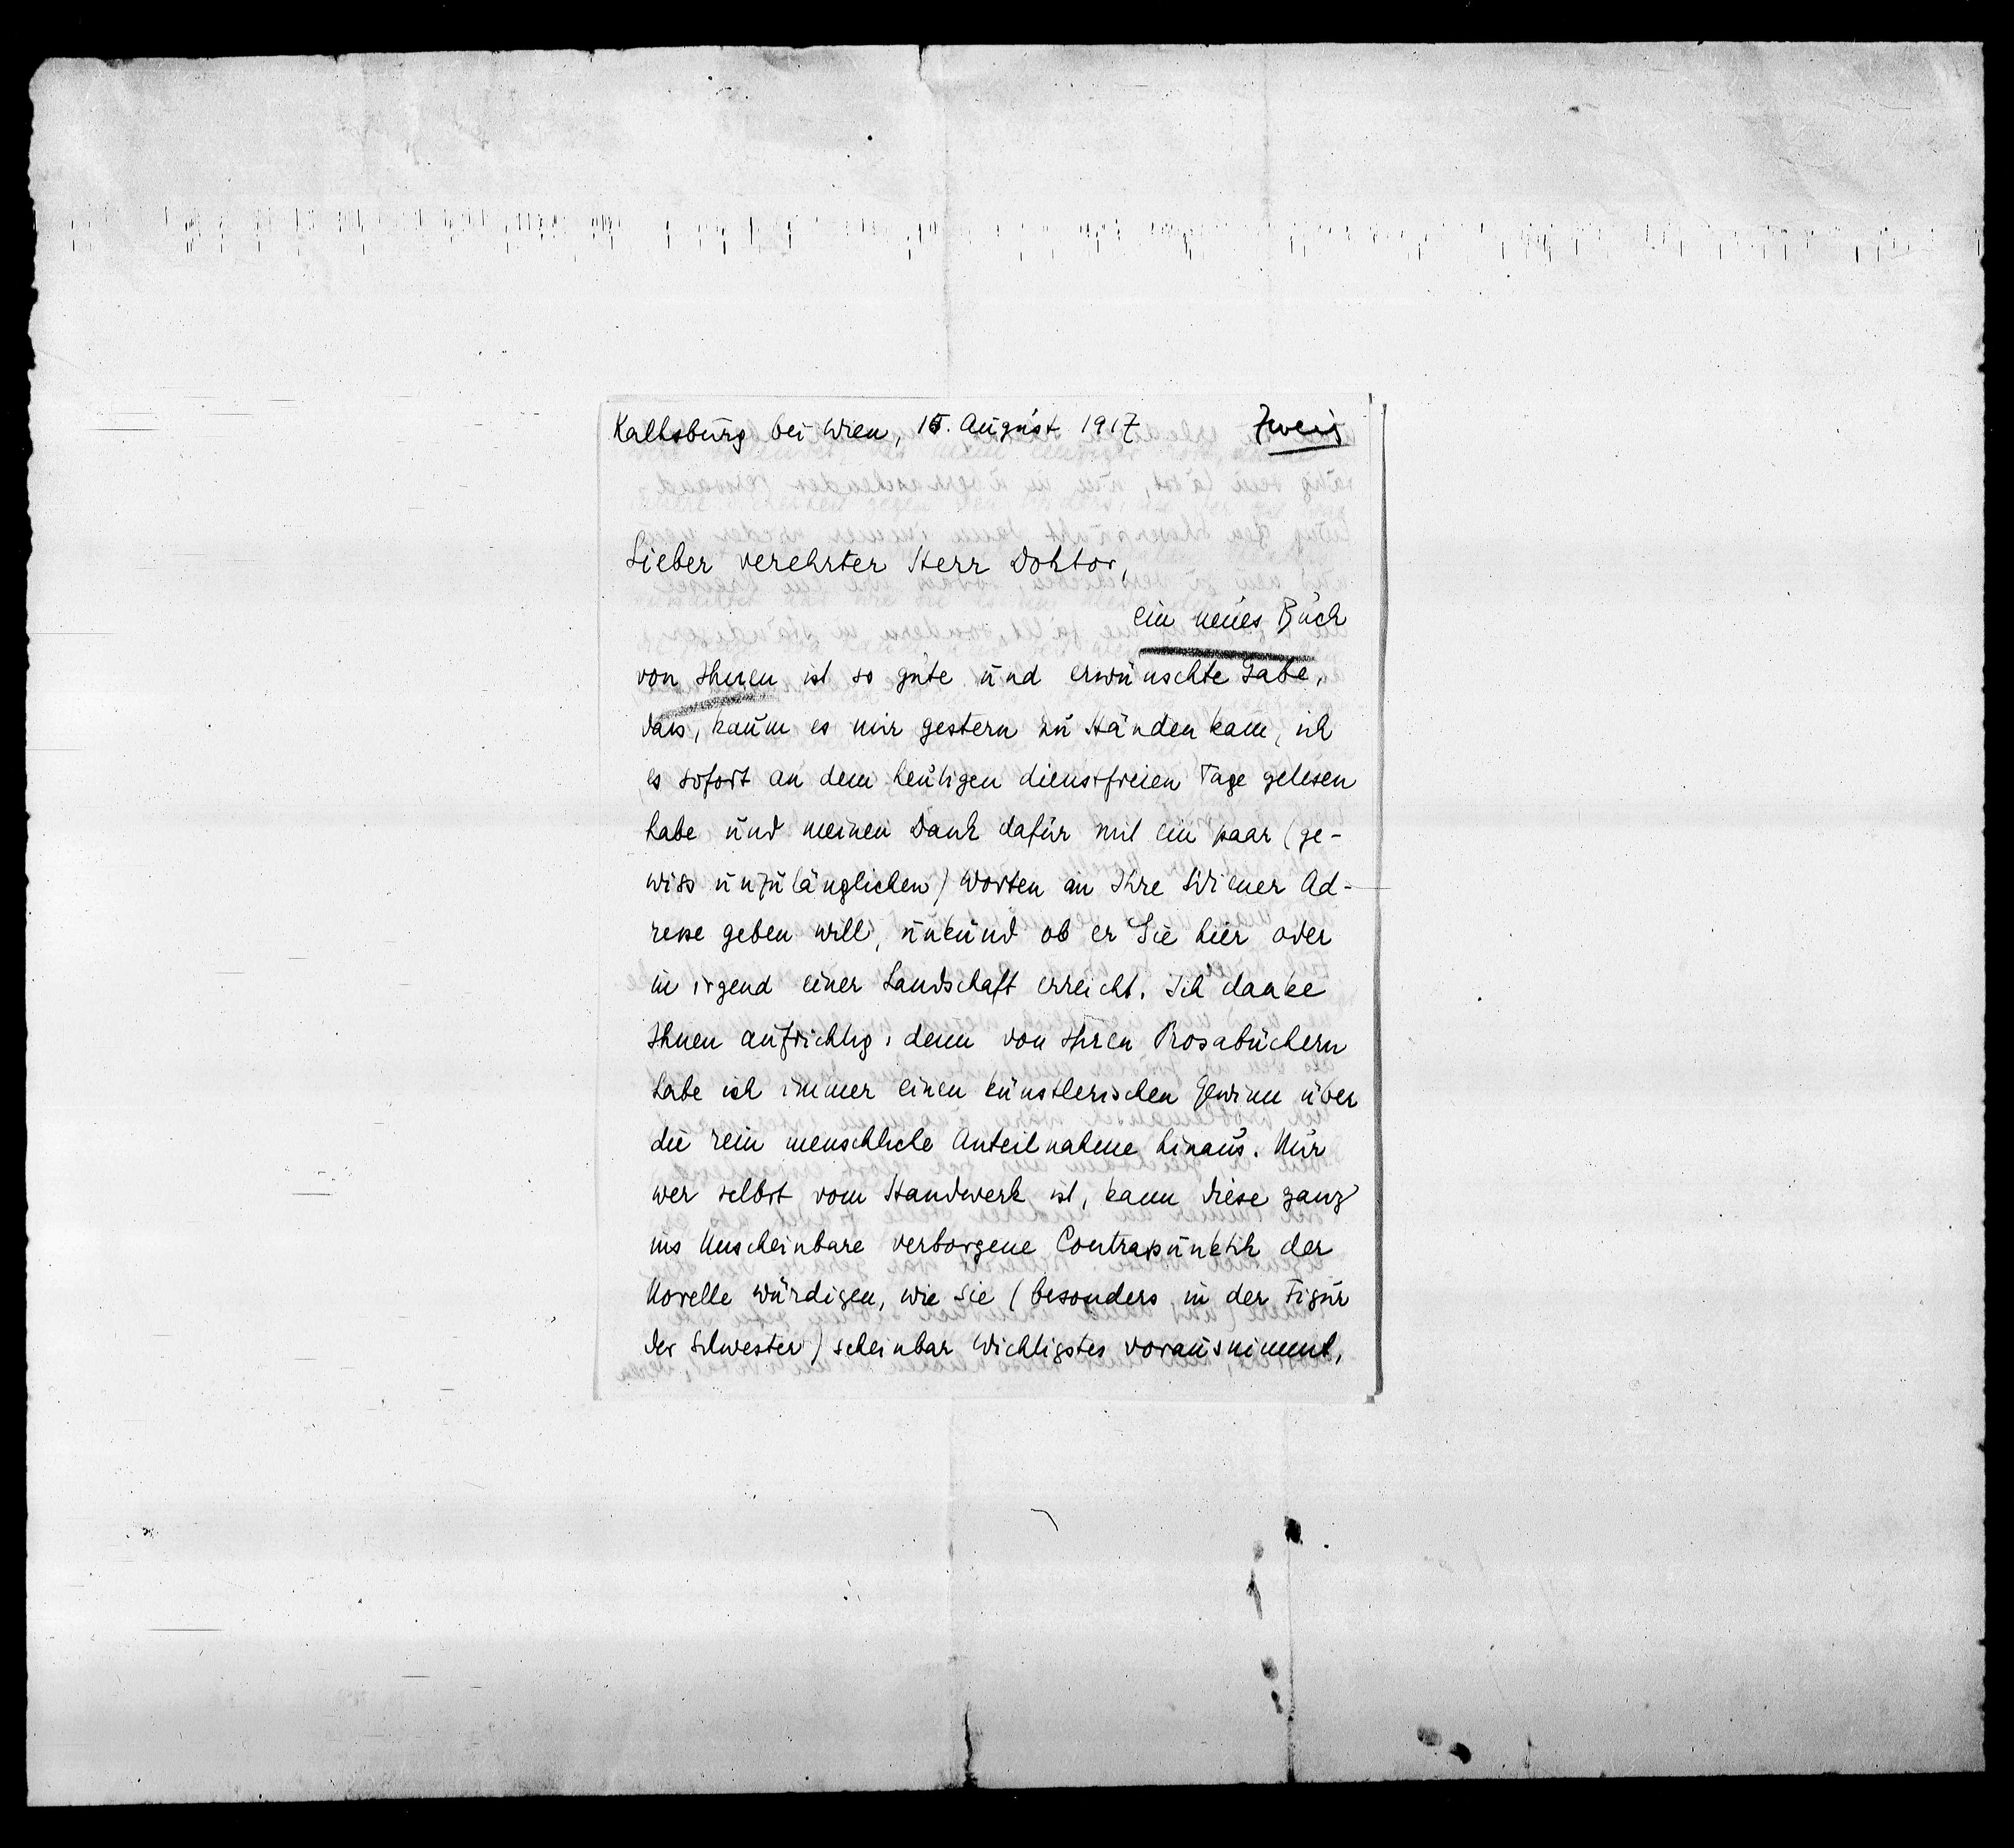 Kalksburg bei Wien, 15. August 1917 Zweig
Lieber verehrter Herr Doktor,
ein neues Buch
von Ihnen ist so gute und erwünschte Gabe,
dass, kaum es mir gestern zu Händen kam, ich
es sofort an dem heutigen dienstfreien Tage gelesen
habe und meinen Dank dafür mit ein paar (ge-
wiss unzulänglichen) Worten an Ihre Wiener Ad-
resse geben will, unkund ob er Sie hier oder
in irgend einer Landschaft erreicht. Ich danke
Ihnen aufrichtig: denn von Ihren Prosabüchern
habe ich immer einen künstlerischen Gewinn über
die rein menschliche Anteilnahme hinaus. Nur
wer selbst vom Handwerk ist, kann diese ganz
ins Unscheinbare verborgene Contrapunktik der
Novelle würdigen, wie sie (besonders in der Figur
der Schwester) scheinbar Wichtigstes vorausnimmt,